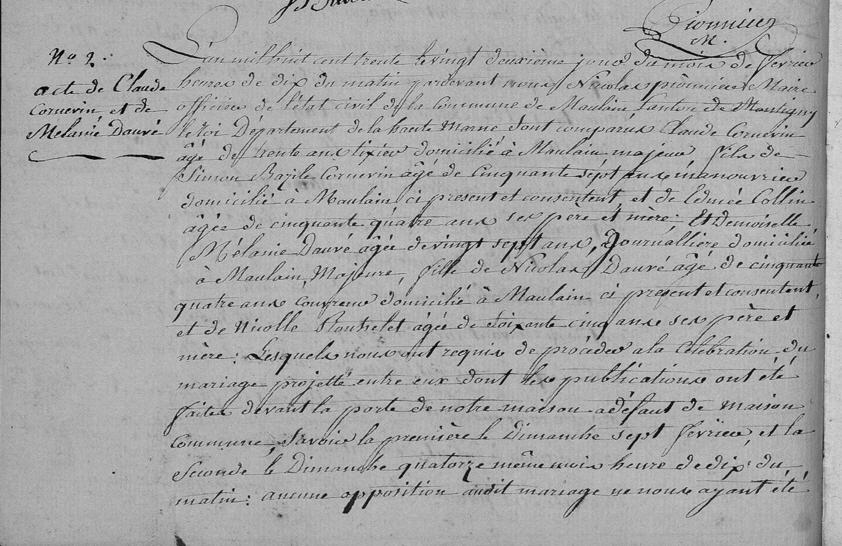 Pionnier
M.
No 2.
acte de Claude
Cornevin et de
Mélanie Dauvé
L'an mil huit cent trente le vingt deuxième jour du mois de février
heures de dix du matin pardevant nous Nicolas pionnier Maire
officier de l'état civil de la Commune de Maulain Canton de Montigny
le roi Département de la haute Marne sont comparus Claude Cornevin
âgé de trente ans tixier domicilié à Maulain majeur fils de
Simon Bazile Cornevin âgé de cinquante sept ans manouvrier
domicilié à Maulain ci présent et consentent et de Collin
âgée de cinquante quatre ans ses père et mère : Et Demoiselle
Mélanie Dauvé agée de vingt sept ans, Journallière domicilié
à Maulain, Majeure, fille de Nicolas Dauvé âgé de cinquante
quatre ans domicilié à Maulain ci présent et consentent,
et de Nicolle âgée de soixante cinq ans ses père et
mère : Lesquels nous ont requis de procéder a la Célébration du
mariage projetté entre eux dont les publications ont été
faites devant la porte de notre maison a défaut de maison
Commune, savoir la première le Dimanche sept février, et la
Seconde le Dimanche quatorze même mois heure de dix du
matin : aucune opposition audit mariage ne nous ayant été